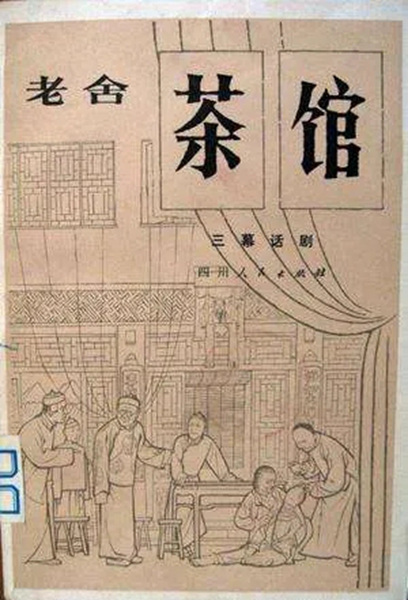 老舍
茶馆
三幕话剧
四川人民出版社